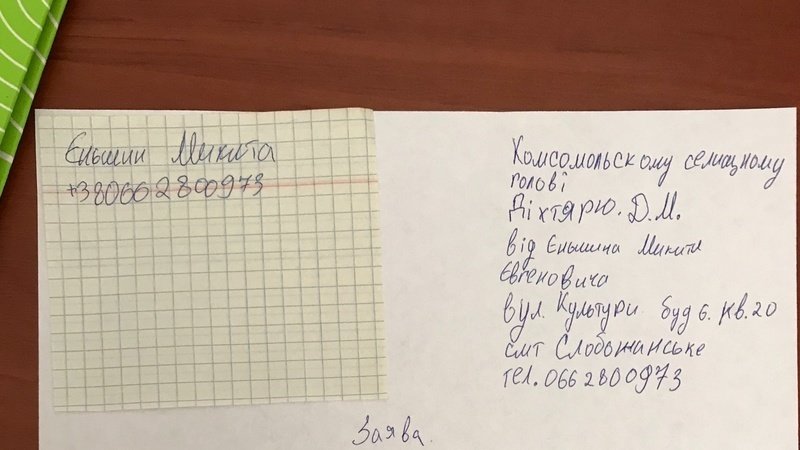 Єньшин Микита
+380662800973
Комсомольскому селищному
голові
Діхтярю. Д.М.
від Єньшина Микити
Євгеновича
вул. Культури буд 6. кв.20
смт Слобожанське
тел. 0662800973
Заява.